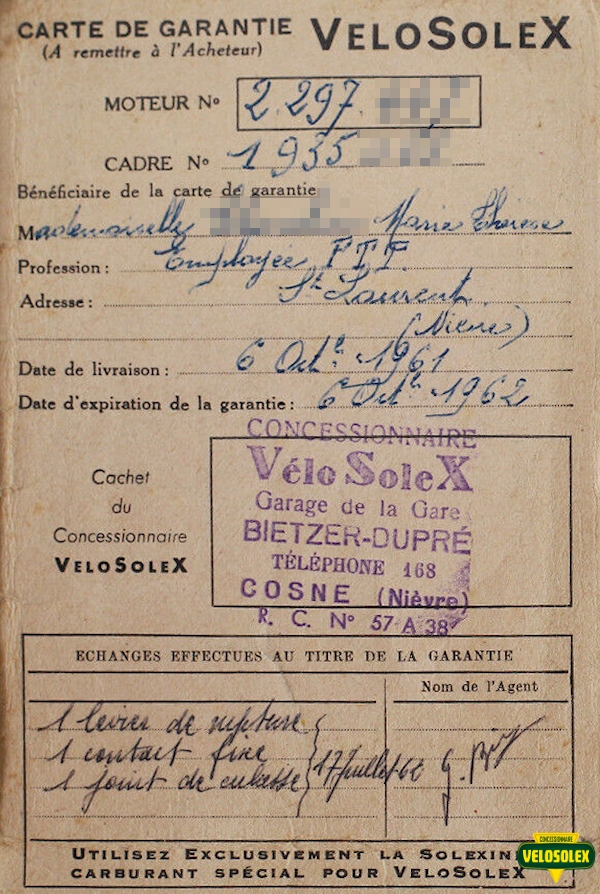 CARTE DE GARANTIE
(A remettre à l'Acheteur)
VELOSOLEX
MOTEUR No 2.297.
CADRE No 1935
Bénéficiaire de la carte de garantie
Mademoiselle Marie Thérèse
Profession : Employée P.T.T.
Adresse : St Laurent
(Nièvre)
Date de livraison : 6 Octbre 1961
Date d'expiration de la garantie : 6 Octbre 1962
Cachet
du
Concessionnaire
VELOSOLEX
CONCESSIONNAIRE
Vélo SoleX
Garage de la Gare
BIETZER-DUPRÉ
TÉLÉPHONE 168
COSNE (Nièvre)
R. C. No 57 A 38
ECHANGES EFFECTUES AU TITRE DE LA GARANTIE
Nom de l'Agent
1 levier de rupture
1 contact fixe
1 joint de culasse
17 Juillet 62
UTILISEZ EXCLUSIVEMENT LA SOLEXINE
CARBURANT SPÉCIAL POUR VELOSOLEX
CONCESSIONNAIRE
VELOSOLEX